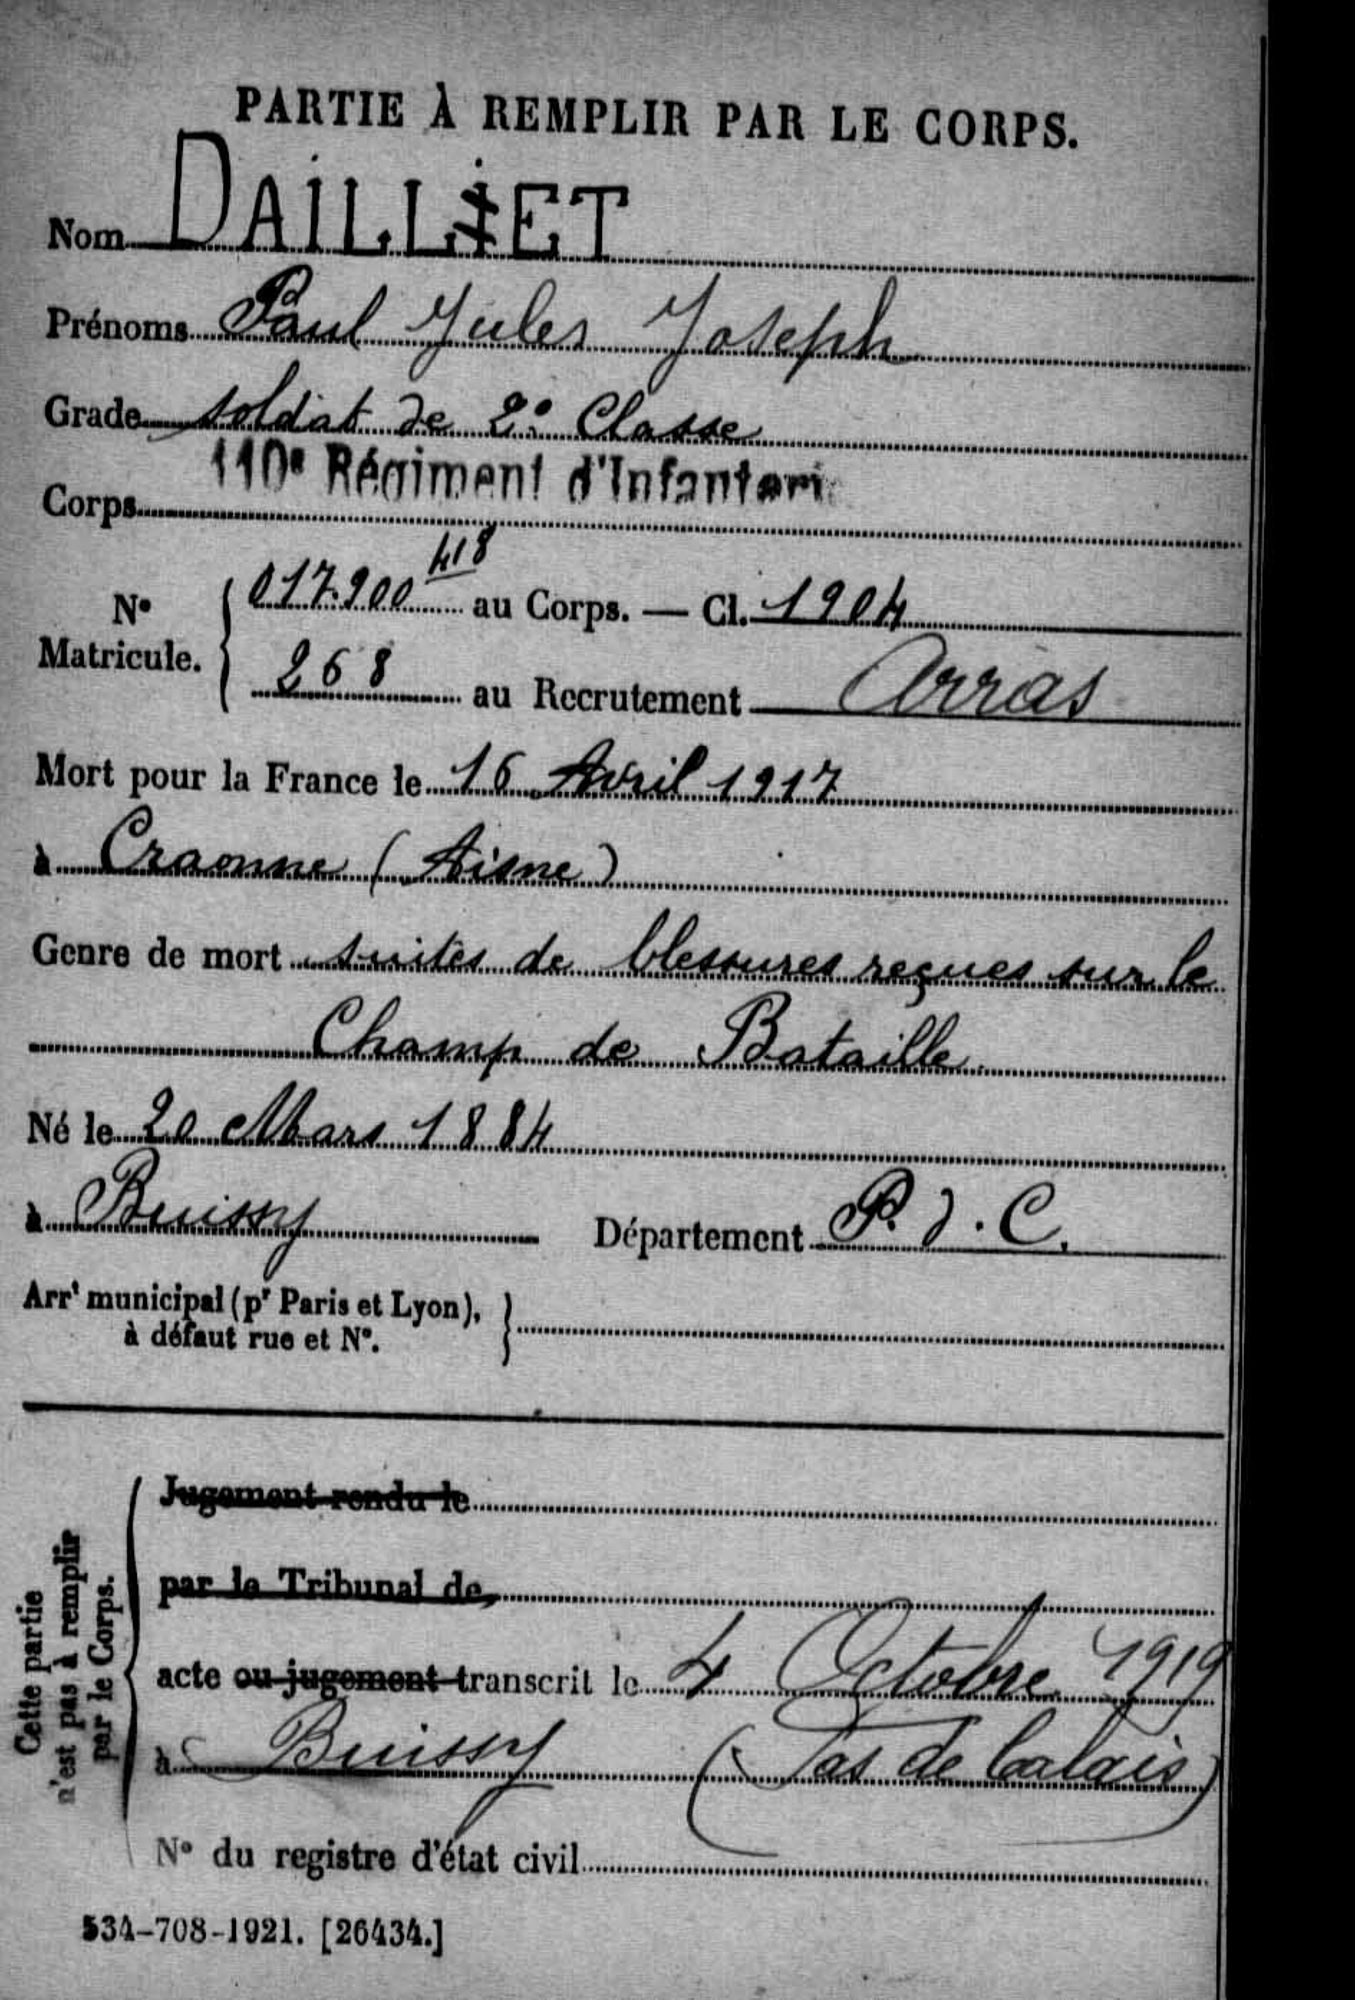 PARTIE À REMPLIR PAR LE CORPS.
Nom DAILLIET
Prénoms Paul Jules Joseph
Grade soldat de 2e Classe
Corps 110e Régiment d'Infanteri
N° Matricule. 017.900 418 au Corps. — Cl. 1904
268 au Recrutement Arras
Mort pour la France le 16 Avril 1917
à Craonne (Aisne)
Genre de mort suites de blessures reçues sur le
Champ de Bataille
Né le 20 Mars 1884
à Buissy Département P. d. C.
Arrt municipal (pr Paris et Lyon),
à défaut rue et N°.
Cette partie
n'est pas à remplir
par le Corps.
Jugement rendu le
par le Tribunal de
acte ou jugement transcrit le 4 Octobre 1919
à Buissy (Pas de Calais)
N° du registre d'état civil
534-708-1921. [26434.]